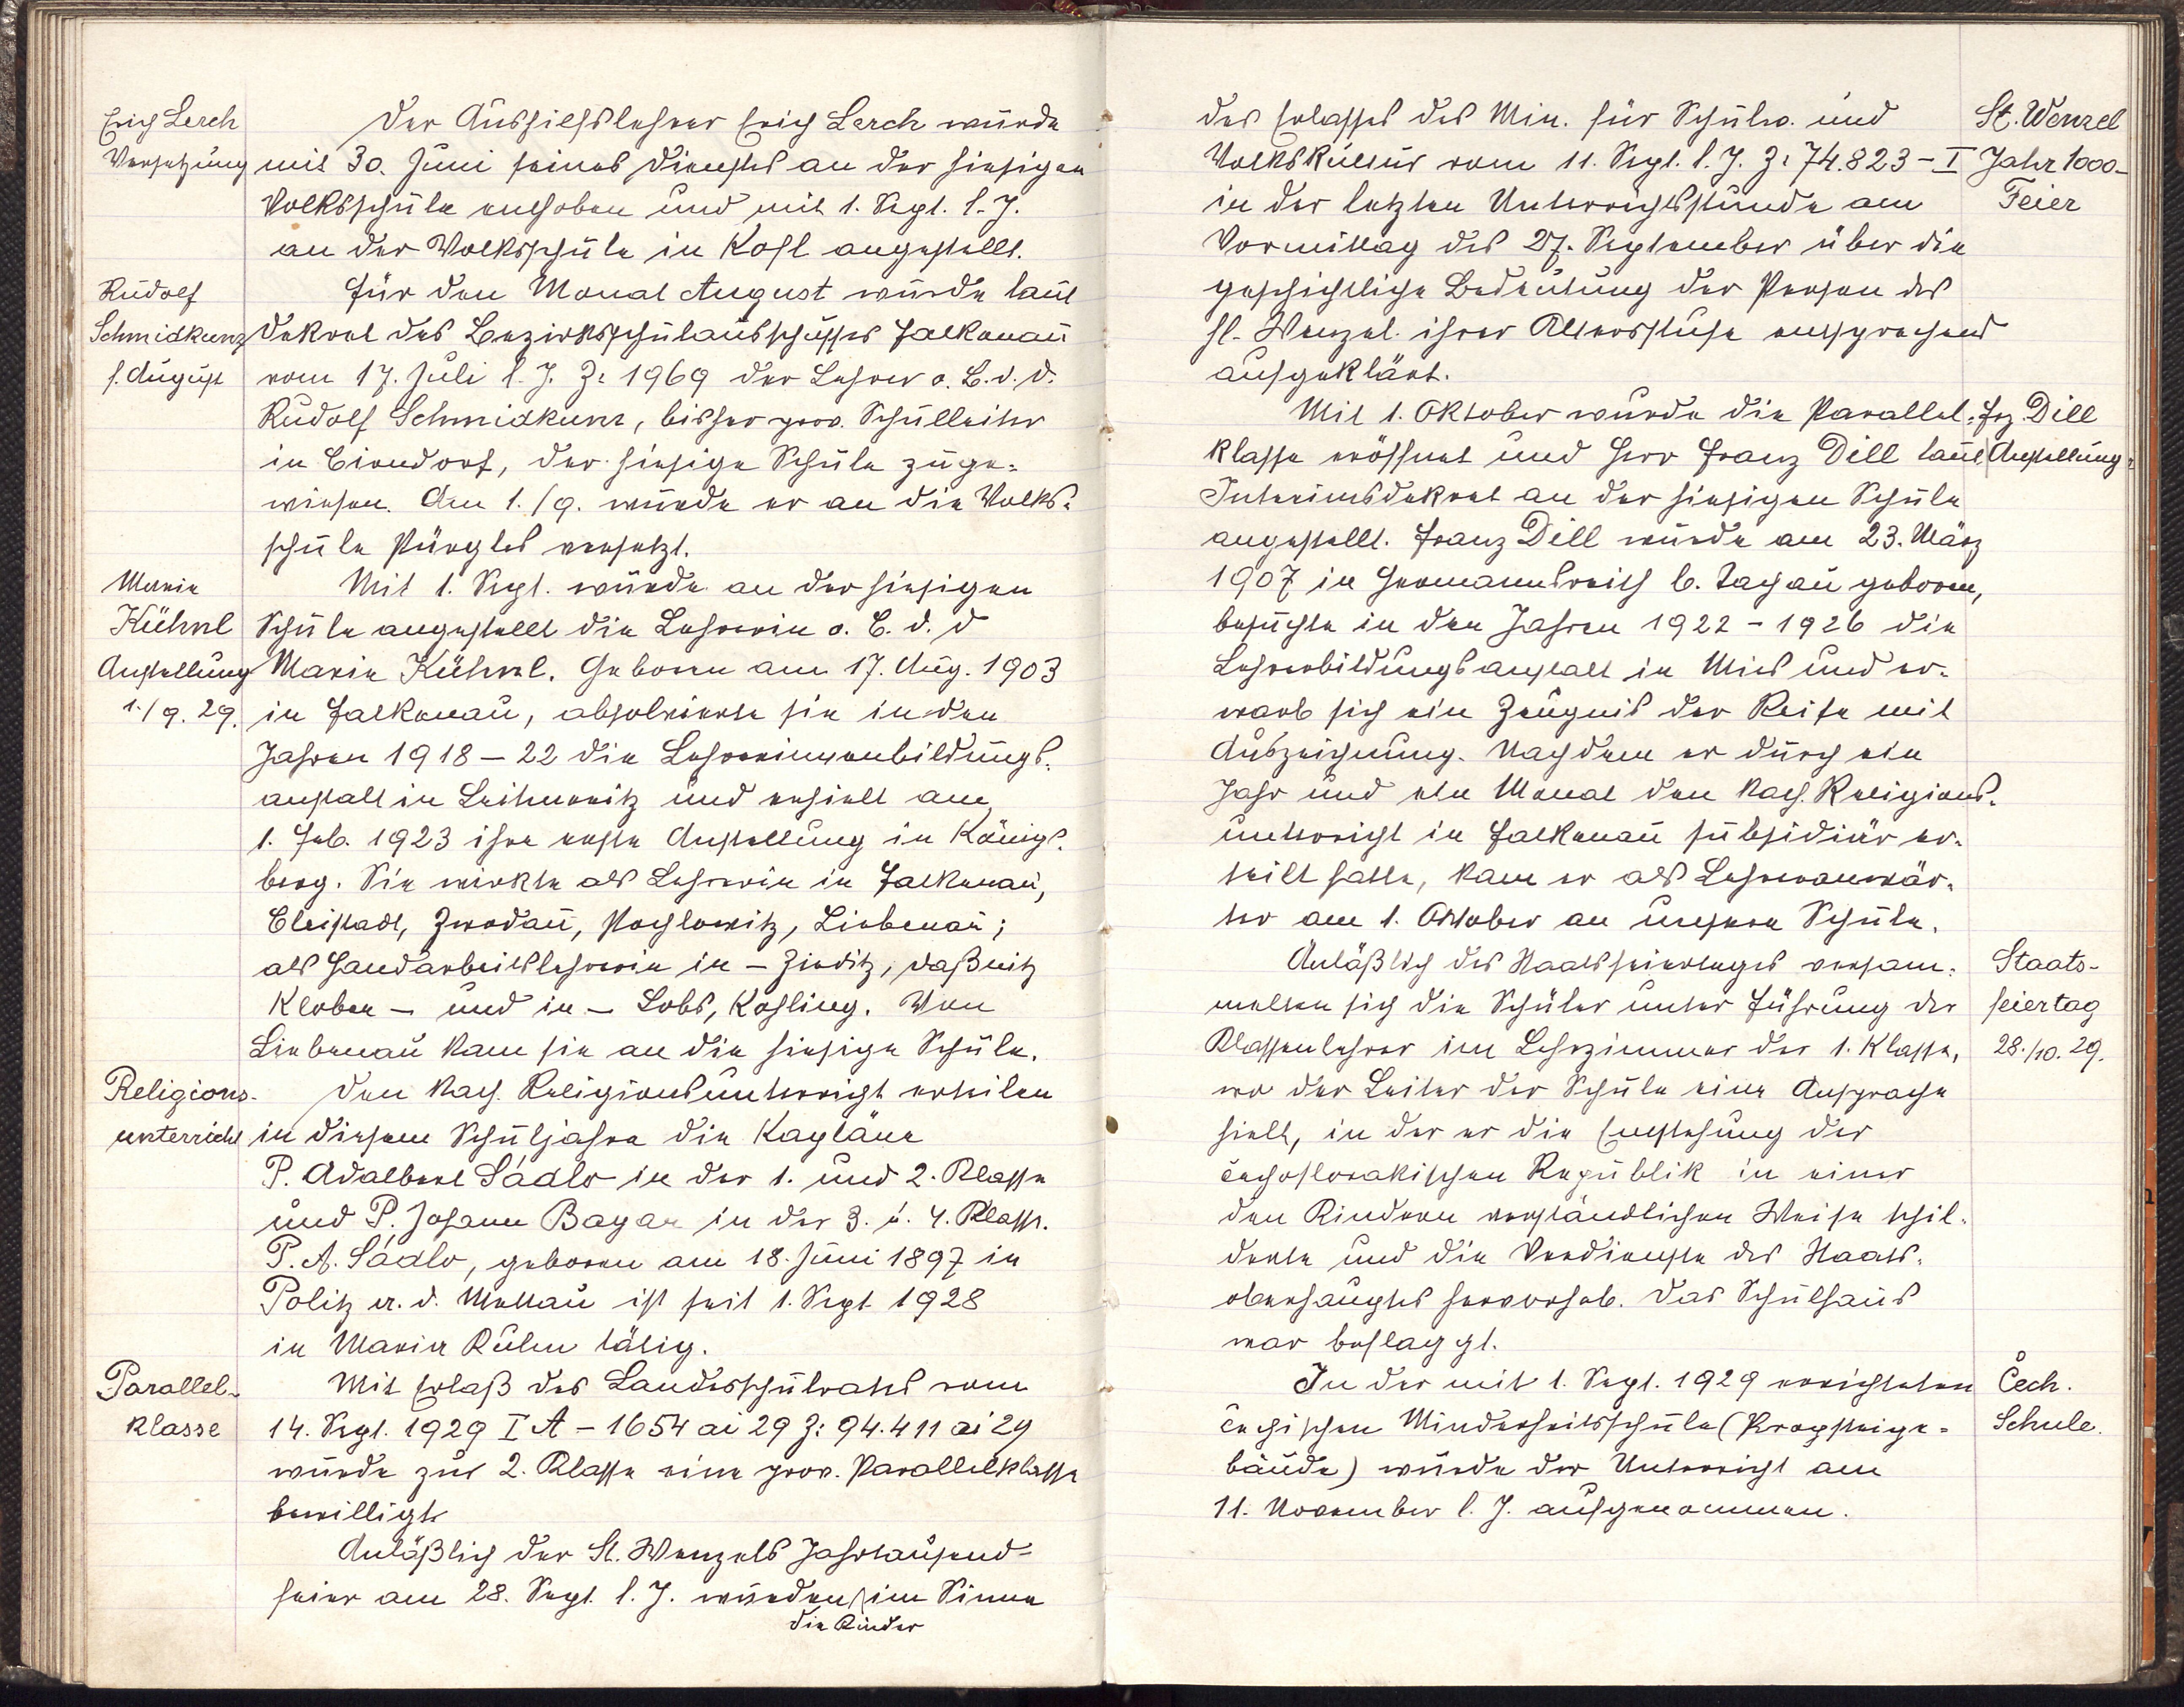 Erich Lerch
Versetzung
Der Aushilfslehrer Erich Lerch wurde
mit 30. Juni seines Dienstes an der hiesigen
Volksschule enthoben und mit 1. Sept. l. J.
an der Volksschule in Kohl angestellt.
Rudolf
Schmidkunz
f. August
Für den Monat August wurde laut
Dekret des Bezirksschulausschusses Falkenau
vom 17. Juli l. J. Z: 1969 der Lehrer o. B. d. D.
Rudolf Schmidkunz, bisher prov. Schulleiter
in Birndorf, der hiesige Schule zuge-
wiesen. Am 1./9. wurde er an die Volks-
schule Pürgles versetzt.
Marie
Kühnl
Anstellung
1./9. 29.
Mit 1. Sept. wurde an der hiesigen
Schule angestellt die Lehrerin o. B. d. D
Marie Kühnl. Geboren am 17. Aug. 1903
in Falkenau, absolvierte sie in den
Jahren 1918 – 22 die Lehrerinnenbildungs-
anstalt in Leitmeritz und erhielt am
1. Feb. 1923 ihre erste Anstellung in Königs-
berg. Sie wirkte als Lehrerin in Falkenau,
Bleistadt, Zwodau, Pochlowitz, Liebenau;
als Handarbeitslehrerin in – Zieditz, Daßnitz
Kloben – und in – Lobs, Kohling. Von
Liebenau kam sie an die hiesige Schule.
Religions-
unterricht
Den kath. Religionsunterricht erteilen
in diesem Schuljahre die Kapläne
P. Adalbert Sádlo in der 1. und 2. Klasse
und P. Johann Bayar in der 3. u. 4. Klasse.
P. A. Sádlo, geboren am 18. Juni 1897 in
Politz a. d. Mettau ist seit 1. Sept 1928
in Maria Kulm tätig.
Parallel-
klasse
Mit Erlaß des Landesschulrates vom
14. Sept. 1929 I A – 1654 ai 29 Z: 94.411 ai 29
wurde zur 2. Klasse eine prov. Parallelklasse
bewilligt.
Anläßlich der St. Wenzels Jahrtausend-
feier am 28. Sept. l. J. wurden im Sinne
die Kinder
des Erlasses des Min. für Schulw. und
Volkskultur vom 11. Sept. l. J. Z: 74.823 – I
in der letzten Unterrichtsstunde am
Vormittag des 27. September über die
geschichtliche Bedeutung der Person des
hl. Wenzel ihrer Altersstufe entsprechend
aufgeklärt.
St. Wenzel
Jahr 1000-
Feier
Mit 1. Oktober wurde die Parallel-
klasse eröffnet und Herr Franz Dill laut
Interimsdekret an der hiesigen Schule
angestellt. Franz Dill wurde am 23. März
1907 in Hermannsreith b. Tachau geboren,
besuchte in den Jahren 1922 – 1926 die
Lehrerbildungsanstalt in Mies und er-
warb sich ein Zeugnis der Reife mit
Auszeichnung. Nachdem er durch ein
Jahr und ein Monat den kath. Religions-
unterricht in Falkenau subsidiär er-
teilt hatte, kam er als Lehreranwär-
ter am 1. Oktober an unsere Schule.
Frz. Dill
Anstellung
Anläßlich des Staatsfeiertages versam-
melten sich die Schüler unter Führung der
Klassenlehrer im Lehrzimmer der 1. Klasse,
wo der Leiter der Schule eine Ansprache
hielt, in der er die Entstehung der
čechoslovakischen Republik in einer
den Kindern verständlichen Weise schil-
derte und die Verdienste des Staats-
oberhauptes hervorhob. Das Schulhaus
war beflaggt.
Staats-
feiertag
28./10. 29.
In der mit 1. Sept. 1929 errichteten
čechischen Minderheitsschule (Propsteige-
bäude) wurde der Unterricht am
11. November l. J. aufgenommen.
Čech.
Schule.